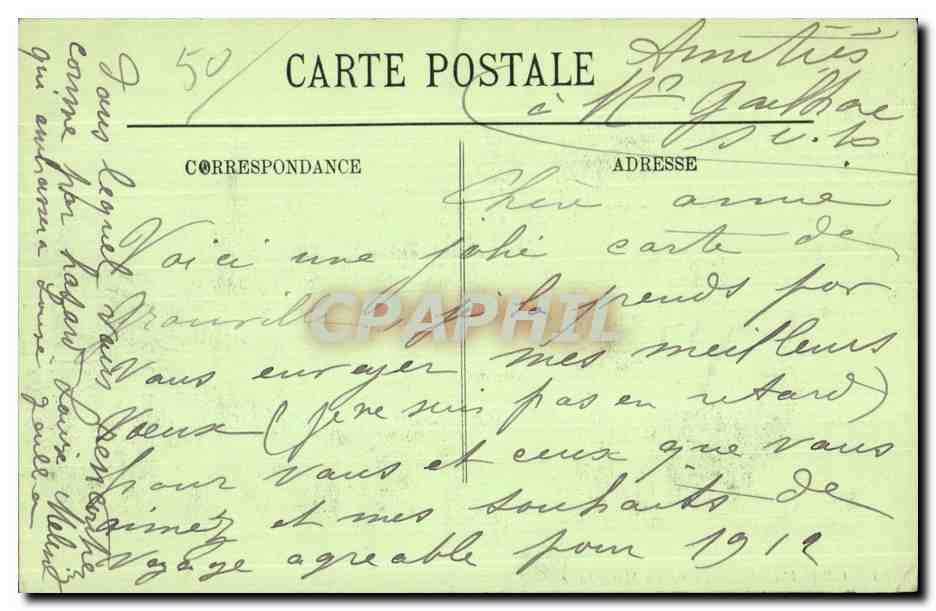 50/
CARTE POSTALE
Amitiés
à Mr
s. v. p.
CORRESPONDANCE
ADRESSE
Chère amie
Voici une jolie carte de
Trouville je la prends por
vous envoyer mes meilleurs
voeux (je ne suis pas en retard)
pour vous et ceux que vous
aimez et mes souhaits de
voyage agréable pour 1912
dans lequel vous rencontre
comme par hazard Louise
qui embrassera Louise
CPAPHIL